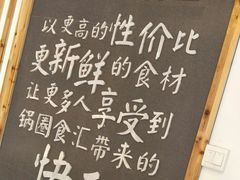 以更高的性价比
更新鲜的食材
让更多人享受到
锅圈食汇带来的
快